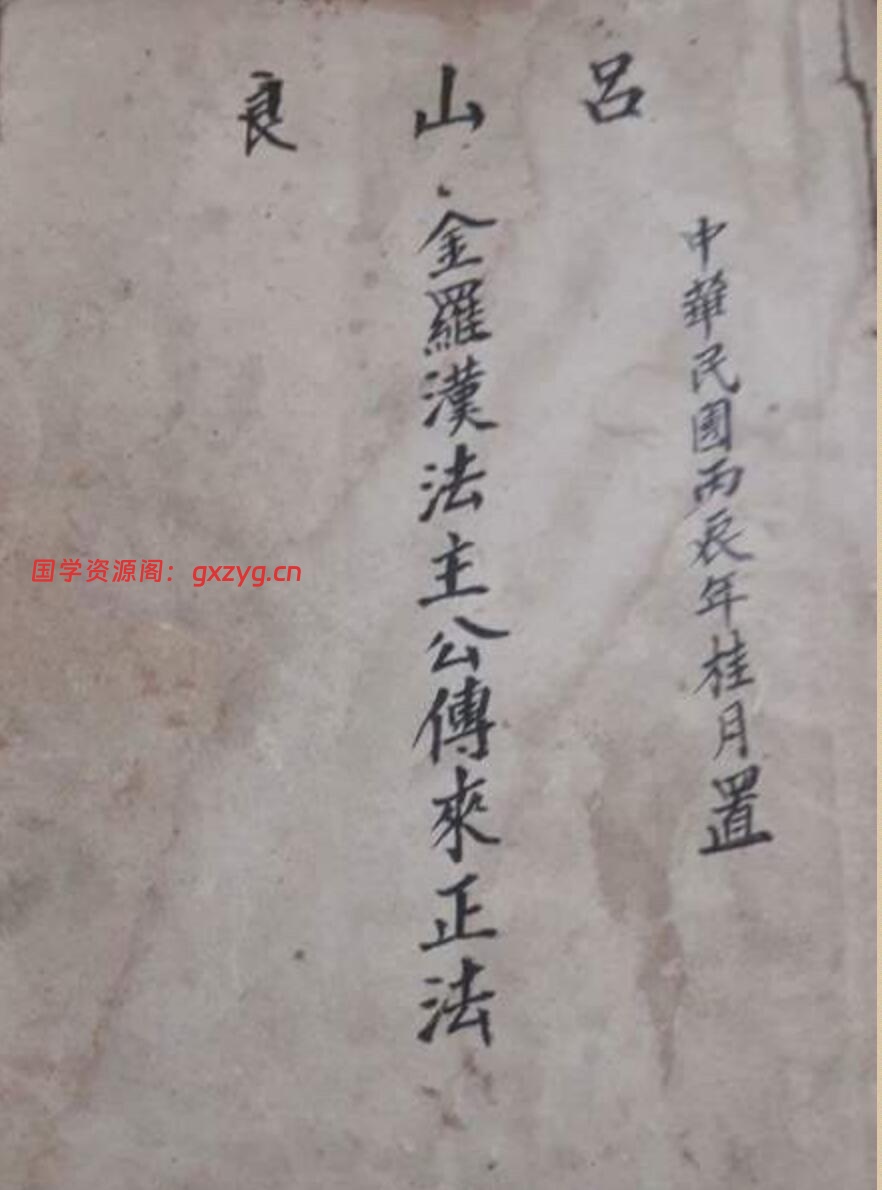 呂山良
中華民國丙辰年桂月置
金羅漢法主公傳來正法
国学资源阁：gxzyg.cn